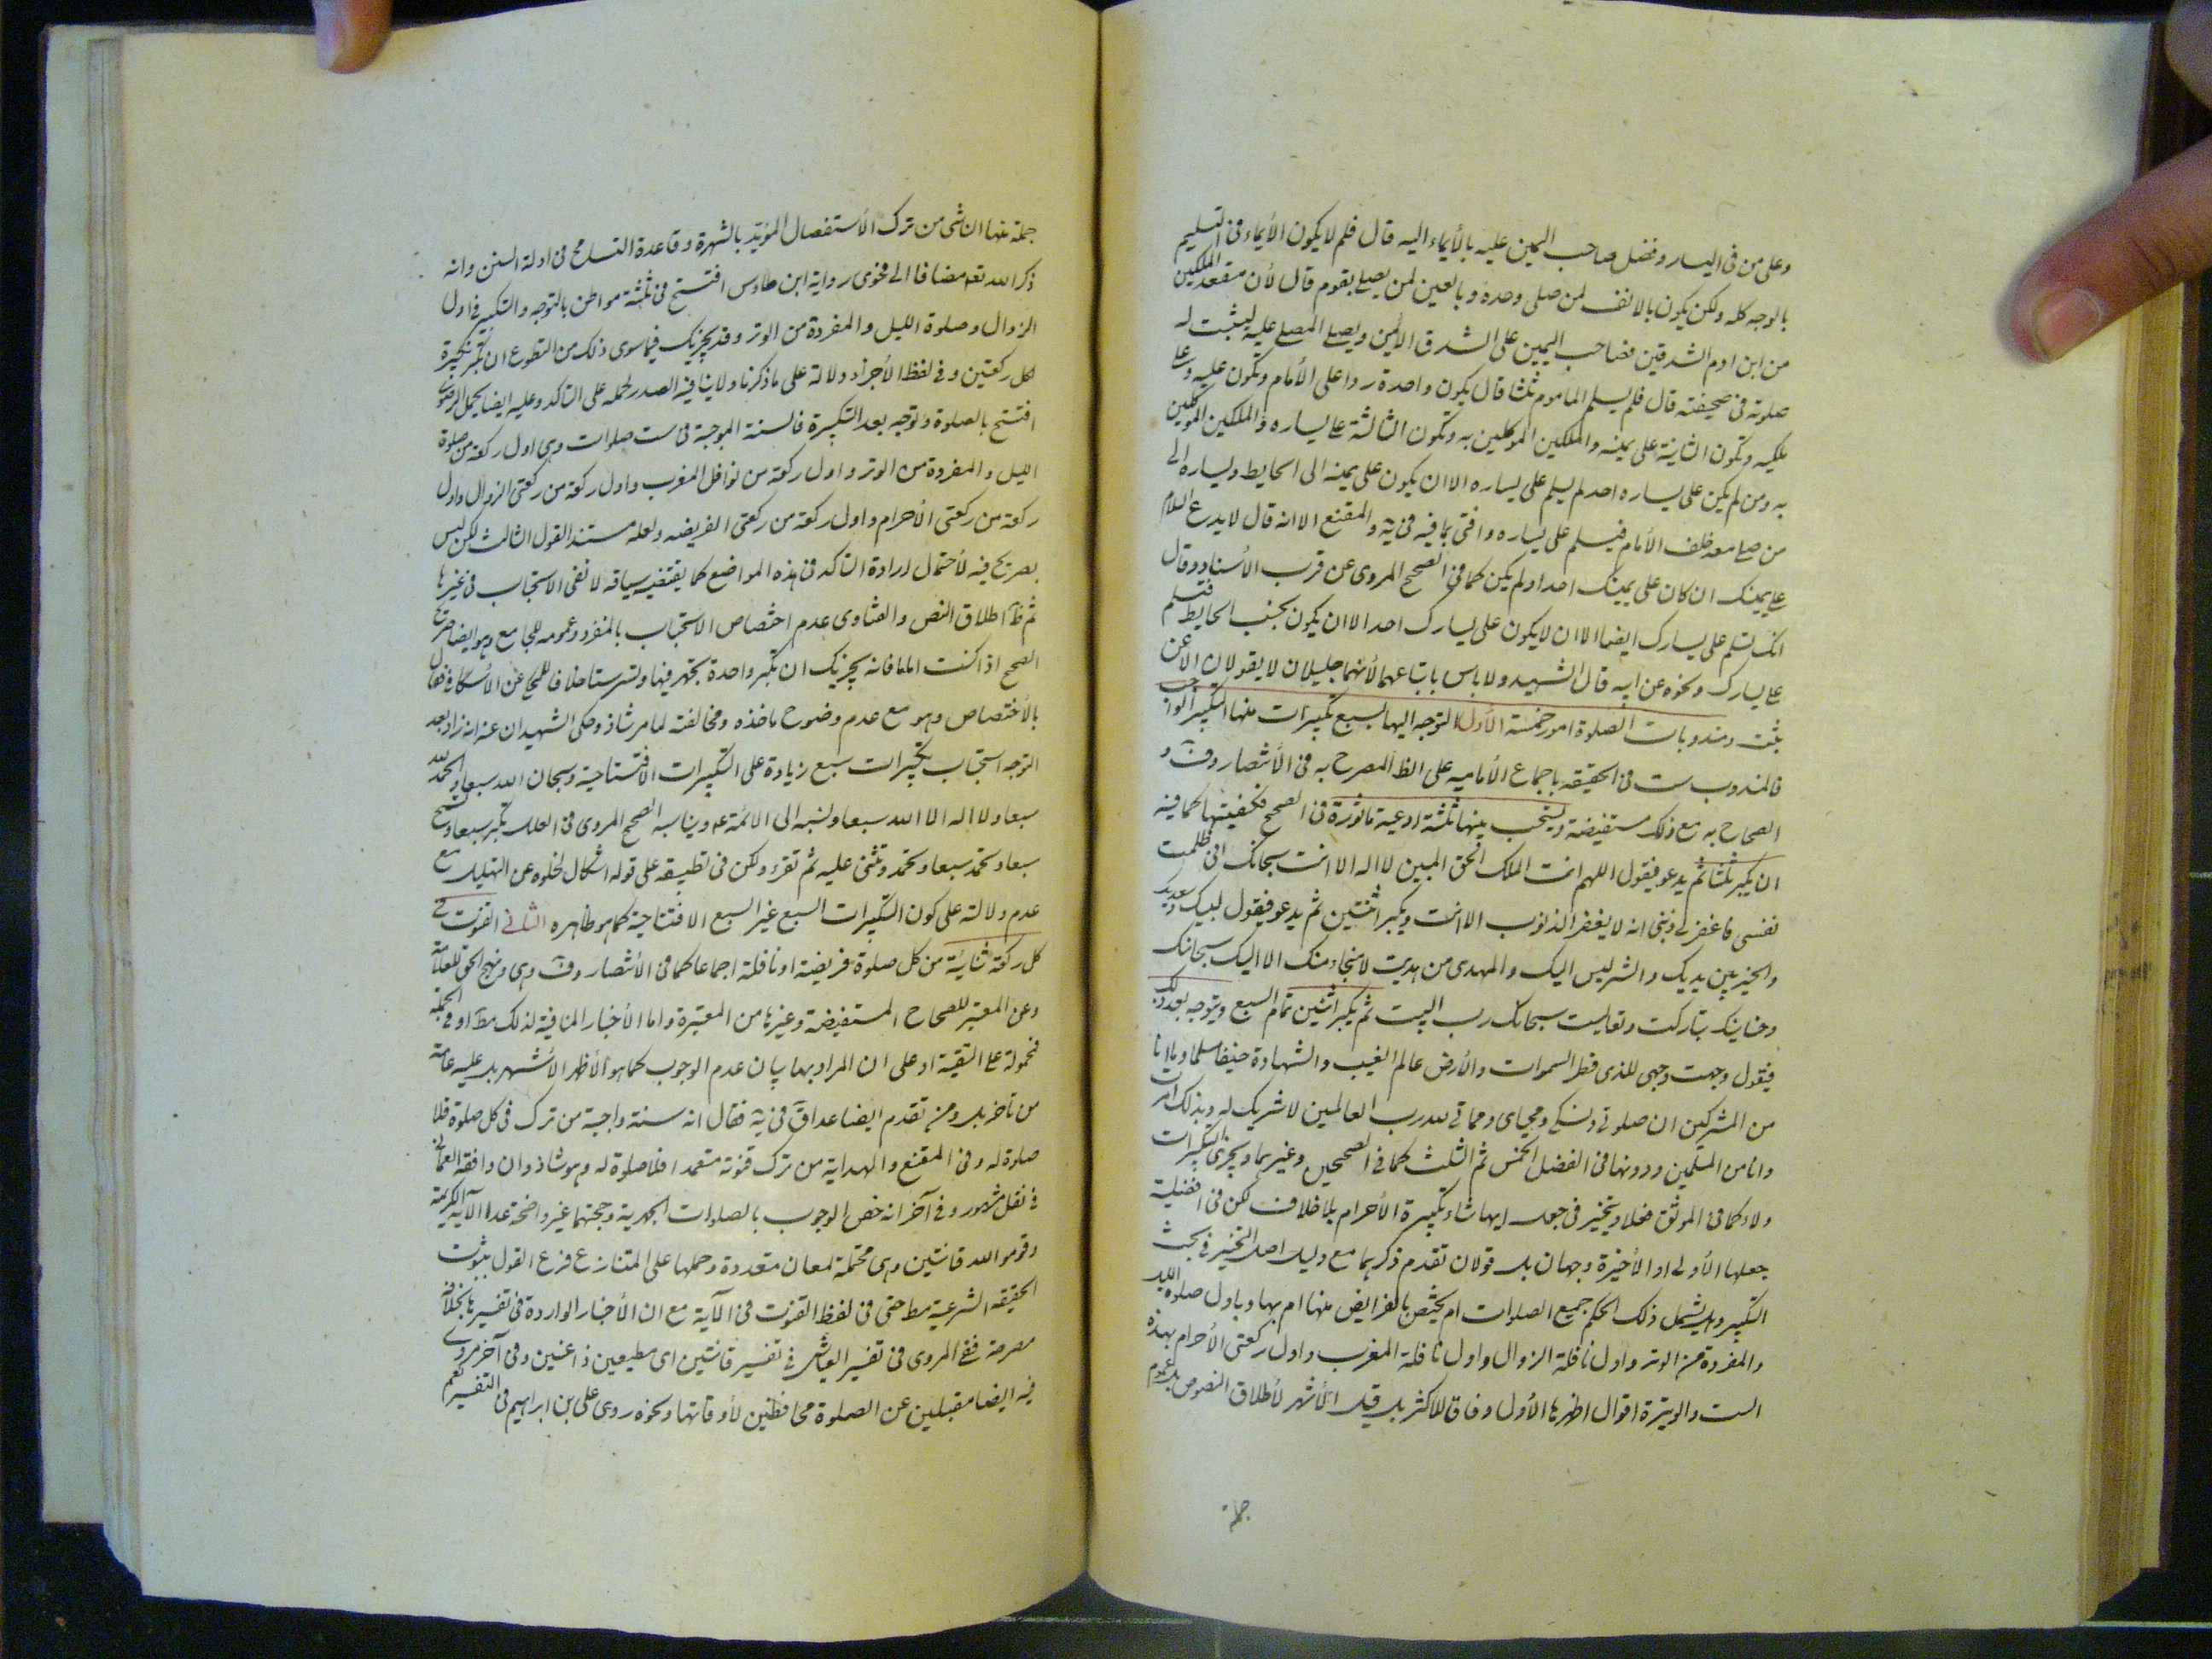 وعلى من فى اليسار وفضل صاحب اليمين عليه بالأيماء اليه قال فلم لا يكون الأيماء فى التسليم
بالوجه كله ولكن يكون بالانف لمن صلى وحده وبالعين لمن يصلى بقوم قال لأن مقعد الملكين
من ابن ادم الشدقين فصاحب اليمين على الشدق الأيمن ويصلى المصلى عليه ليثبت له
صلوته فى صحيفته قال فلم يسلم الماموم ثلثا قال يكون واحدة ردا على الأمام وتكون عليه وعلى
ملكيه وتكون الثانية على يمينه والملكين الموكلين به وتكون الثالثة على يساره والملكين الموكلين
به ومن لم يكن على يساره احد لم يسلم على يساره الا ان يكون على يمينه الى الحايط ويساره الى
من صلى معه خلف الأمام فيسلم على يساره وافتى بما فيه فى يه والمقنع الا انه قال لا يدع السلام
على يمينك ان كان على يمينك احد او لم يكن كما فى الصحيح المروى عن قرب الأسناد وقال
انك تسلم على يسارك ايضا الا ان لا يكون على يسارك احد الا ان يكون بجنب الحايط فتسلم
على يسارك ونحوه عن ابيه قال الشهيد ولا باس باتباعهما لأنهما جليلان لا يقولان الا عن
ثبت ومندوبات الصلوة امور خمسة الأول التوجه اليها بسبع تكبيرات منها التكبير الواجب
فالمندوب ست فى الحقيقه باجماع الأماميه على الظ المصرح به فى الأنتصار وف و
الصحاح به مع ذلك مستفيضة ويستحب بينها ثلثة ادعية ماثورة فى الصحيح فكيفيتها كما فيه
ان يكبر ثلثا ثم يدعو فيقول اللهم انت الملك الحق المبين لا اله الا انت سبحانك انى ظلمت
نفسى فاغفر لى ذنبى انه لا يغفر الذنوب الا انت ويكبر اثنتين ثم يدعو فيقول لبيك وسعديك
والخير بين يديك والشر ليس اليك والمهدى من هديت لا منجاء منك الا اليك سبحانك
وحنانيك تباركت وتعاليت سبحانك رب البيت ثم يكبر اثنتين تمام السبع ويتوجه بعد ذلك
فيقول وجهت وجهى للذى فطر السموات والأرض عالم الغيب والشهادة حنيفا مسلما وما انا
من المشركين ان صلوتى ونسكى ومحياى ومماتى لله رب العالمين لا شريك له وبذلك امرت
وانا من المسلمين ودونها فى الفضل الخمس ثم الثلث كما فى الصحيحين وغيرهما ويجزى التكبيرات
ولاء كما فى الموثق فعلا ويتخير فى جعل ايها شاء تكبيرة الأحرام بلا خلاف لكن فى افضلية
جعلها الأولى او الأخيرة وجهان بل قولان تقدم ذكرهما مع دليل اصل التخيير فى بحث
التكبير وهل يشمل ذلك الحكم جميع الصلوات ام يختص بالفرايض منها ام بها وباول صلوة الليل
والمفردة من الوتر واول نافلة الزوال واول نافلة المغرب واول ركعتى الأحرام بهذه
الست والوتيرة اقوال اظهرها الأول وفاقا للاكثر بل قيل الأشهر لأطلاق النصوص بل عموم
جملة
جملة منها الناشى من ترك الأستفصال المؤيد بالشهرة وقاعدة التسامح فى ادلة السنن وانه
ذكر الله تعه مضافا الى فحوى رواية ابن طاوس افتتح فى ثلثة مواطن بالتوجه والتكبير فى اول
الزوال وصلوة الليل والمفردة من الوتر وقد يجزيك فيما سوى ذلك من التطوع ان تكبر تكبيرة
لكل ركعتين وفى لفظ الأجزاء دلالة على ما ذكرنا ولا ينافيه الصدر لحمله على التاكد وعليه ايضا يحمل الرضوى
افتتح بالصلوة وتوجه بعد التكبيرة فالسنة الموجبة فى ست صلوات وهى اول ركعة من صلوة
الليل والمفردة من الوتر واول ركعة من نوافل المغرب واول ركعة من ركعتى الزوال واول
ركعة من ركعتى الأحرام واول ركعة من ركعتى الفريضه ولعله مستند القول الثالث لكن ليس
بصريح فيه لأحتمال ارادة التاكد فى هذه المواضع كما يقتضيه سياقه لا نفى الاستحباب فى غيرها
ثم ظ اطلاق النص والفتاوى عدم اختصاص الاستحباب بالمنفرد وعمومه للجامع وهو ايضا صريح
الصحيح اذا كنت اماما فانه يجزيك ان تكبر واحدة تجهر فيها وتسر ستا خلافا للمحكى عن الأسكافى فقال
بالأختصاص وهو مع عدم وضوح ماخذه ومخالفته لما مر شاذ وحكى الشهيدان عنه انه زاد بعد
التوجه استحباب تكبيرات سبع زيادة على التكبيرات الأفتتاحية وسبحان الله سبعا والحمد لله
سبعا ولا اله الا الله سبعا ونسبه الى الائمة ع ويناسبه الصحيح المروى فى العلل يكبر سبعا ويسبح
سبعا ويحمد سبعا ويحمد ويثنى عليه ثم تقرء ولكن فى تطبيقه على قوله اشكال لخلوه عن التهليل مع
عدم دلالته على كون التكبيرات السبع غير السبع الافتتاحية كما هو ظاهره الثانى القنوت فى
كل ركعة ثانية من كل صلوة فريضة او نافلة اجماعا كما فى الأنتصار وف وهى ونهج الحق للعلامة
وعن المعتبر للصحاح المستفيضة وغيرها من المعتبرة واما الأخبار المنافية لذلك مط او فى الجملة
فمحمولة على التقية او على ان المراد بها بيان عدم الوجوب كما هو الأظهر الأشهر بل عليه عامة
من تاخر بل ومن تقدم ايضا عدا ق فى يه فقال انه سنة واجبة من ترك فى كل صلوة فلا
صلوة له وفى المقنع والهداية من ترك قنوته متعمدا فلا صلوة له وهو شاذ وان وافقه العمانى
فى نقل مشهور وفى آخر انه خص الوجوب بالصلوات الجهرية وحجتهما غير واضحة عدا الآية الكريمة
وقوموا لله قانتين وهى محتملة لمعان متعددة وحملها على المتنازع فرع القول بثبوت
الحقيقه الشرعية مط حتى فى لفظ القنوت فى الآية مع ان الأخبار الواردة فى تفسيرها بخلافه
مصرحة ففى المروى فى تفسير العياشى فى تفسير قانتين اى مطيعين ذاغنين وفى آخر مروى
فيه ايضا مقبلين عن الصلوة محافظين لأوقاتها ونحوه روى على بن ابراهيم فى التفسير نعم